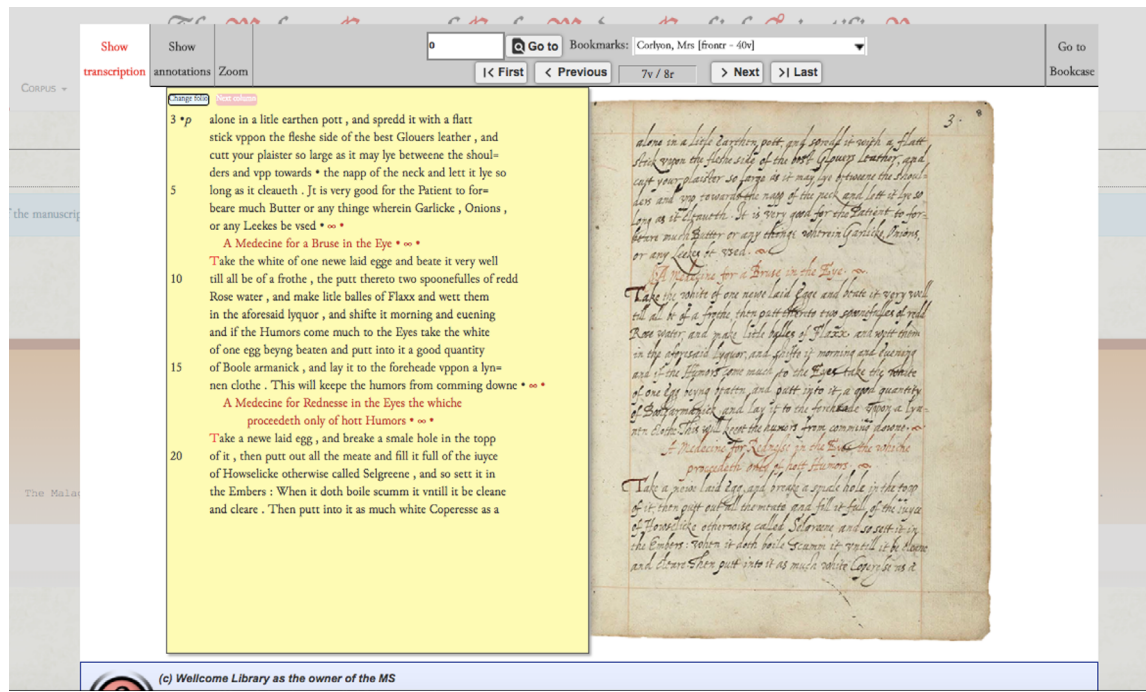 Show transcription
Show annotations
Zoom
0
Go to
Bookmarks:
Corlyon, Mrs [frontr - 40v]
|< First
< Previous
7v / 8r
> Next
>| Last
Go to Bookcase
CORPUS
the manuscrip
The Mala
Change folio
Next column
3 •p alone in a litle earthen pott , and spredd it with a flatt
stick vppon the fleshe side of the best Glouers leather , and
cutt your plaister so large as it may lye betweene the shoul=
ders and vpp towards • the napp of the neck and lett it lye so
5 long as it cleaueth . Jt is very good for the Patient to for=
beare much Butter or any thinge wherein Garlicke , Onions ,
or any Leekes be vsed • ∞ •
A Medecine for a Bruse in the Eye • ∞ •
Take the white of one newe laid egge and beate it very well
10 till all be of a frothe , the putt thereto two spoonefulles of redd
Rose water , and make litle balles of Flaxx and wett them
in the aforesaid lyquor , and shifte it morning and euening
and if the Humors come much to the Eyes take the white
of one egg beyng beaten and putt into it a good quantity
15 of Boole armanick , and lay it to the foreheade vppon a lyn=
nen clothe . This will keepe the humors from comming downe • ∞ •
A Medecine for Rednesse in the Eyes the whiche
proceedeth only of hott Humors • ∞ •
Take a newe laid egg , and breake a smale hole in the topp
20 of it , then putt out all the meate and fill it full of the iuyce
of Howselicke otherwise called Selgreene , and so sett it in
the Embers : When it doth boile scumm it vntill it be cleane
and cleare . Then putt into it as much white Coperesse as a
3. 8
alone in a litle earthen pott, and spredd it with a flatt
stick vpon the fleshe side of the best Glouers leather, and
cutt your plaister so large as it may lye betweene the shoul-
ders and vpp towards the napp of the neck and lett it lye so
long as it cleaueth. It is very good for the Patient to for-
beare much Butter or any thinge wherein Garlicke, Onions,
or any Leekes be vsed. ∞
A Medecine for a Bruse in the Eye. ∞
Take the white of one newe laid Egge and beate it very well
till all be of a frothe, then putt thereto two spoonefulles of redd
Rose water, and make litle balles of Flaxx and wett them
in the aforesaid lyquor, and shifte it morning and euening
and if the Humors come much to the Eyes take the white
of one Egg beyng beaten, and putt into it a good quantity
of Boolearmanick, and lay it to the foreheade vppon a lyn-
nen clothe. This will keepe the humors from comming downe. ∞
A Medecine for Rednesse in the Eyes the whiche
proceedeth only of hott Humors. ∞
Take a newe laid Egg, and breake a smale hole in the topp
of it, then putt out all the meate and fill it full of the iuyce
of Howselicke otherwise called Selgreene and so sett it in
the Embers: when it doth boile scumm it vntill it be cleane
and cleare Then putt into it as much white Coperesse as a
(c) Wellcome Library as the owner of the MS